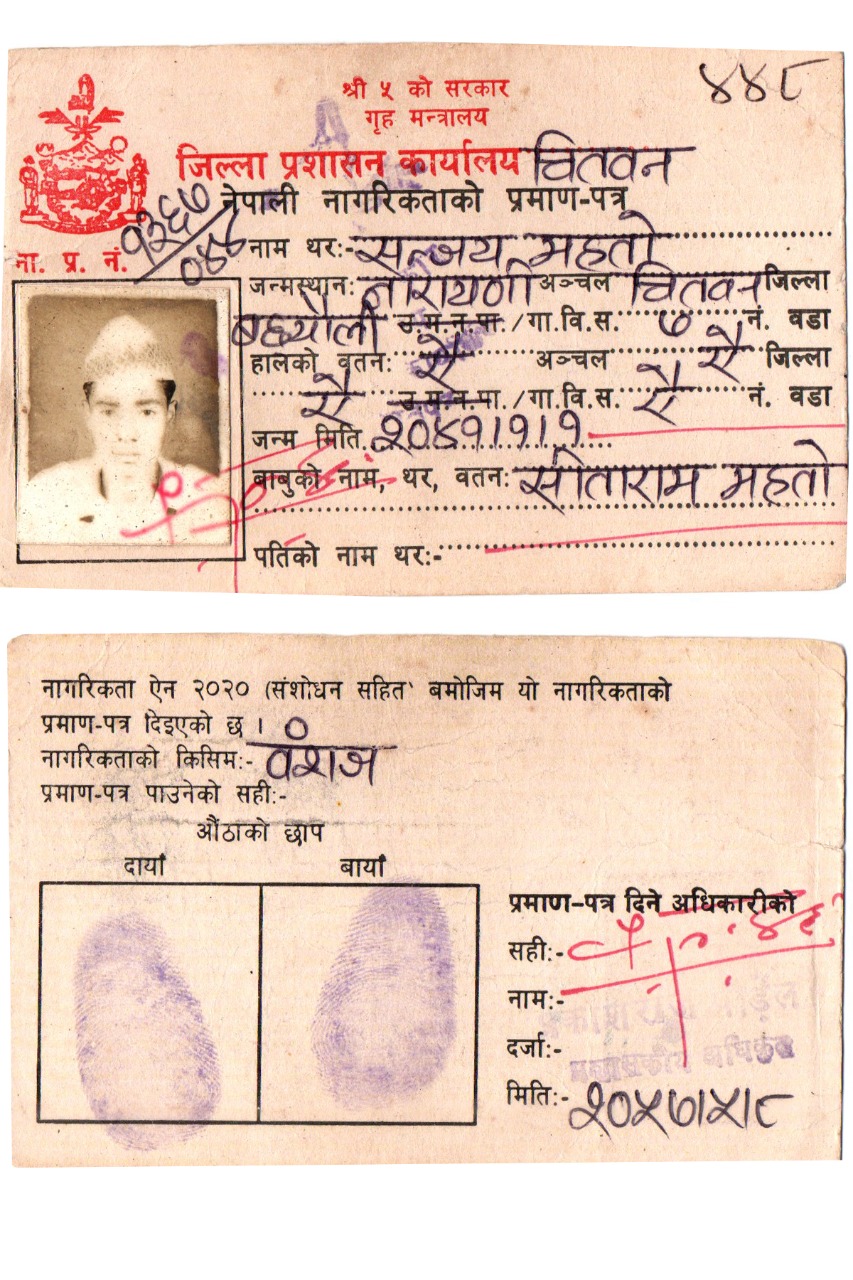 ४४८
श्री ५ को सरकार
गृह मन्त्रालय
जिल्ला प्रशासन कार्यालय चितवन
नेपाली नागरिकताको प्रमाण-पत्र
ना. प्र. नं. १३६७
नाम थर:- सन्जय महतो
जन्मस्थान: नारायणी अञ्चल चितवन जिल्ला
बछ्यौली उ.म.न.पा./गा.वि.स. ७ नं. वडा
हालको वतन: ऐ अञ्चल ऐ जिल्ला
ऐ उ.म.न.पा./गा.वि.स. ऐ नं. वडा
जन्म मिति २०४१।१।१
बाबुको नाम, थर, वतन: सीताराम महतो
पतिको नाम थर:-
नागरिकता ऐन २०२० (संशोधन सहित) बमोजिम यो नागरिकताको
प्रमाण-पत्र दिइएको छ ।
नागरिकताको किसिम:- वंशज
प्रमाण-पत्र पाउनेको सही:-
औंठाको छाप
दायाँ बायाँ
प्रमाण-पत्र दिने अधिकारीको
सही:-
नाम:-
दर्जा:-
मिति:- २०५७।५।८